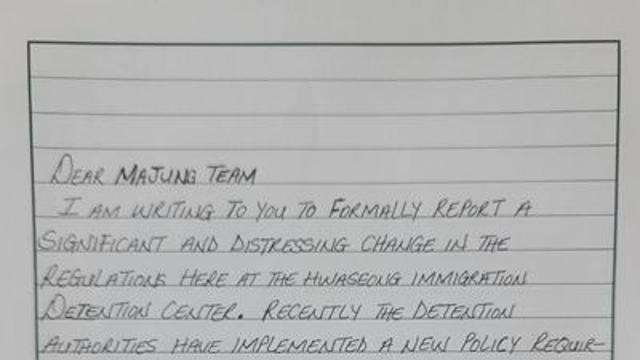 DEAR MAJUNG TEAM
I AM WRITING TO YOU TO FORMALLY REPORT A
SIGNIFICANT AND DISTRESSING CHANGE IN THE
REGULATIONS HERE AT THE HWASEONG IMMIGRATION
DETENTION CENTER. RECENTLY THE DETENTION
AUTHORITIES HAVE IMPLEMENTED A NEW POLICY REQUIR-